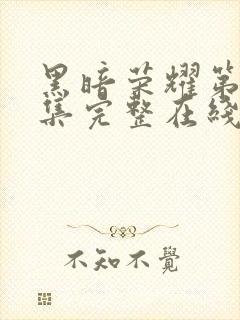 黑暗荣耀第
集完整在线
不知不覺